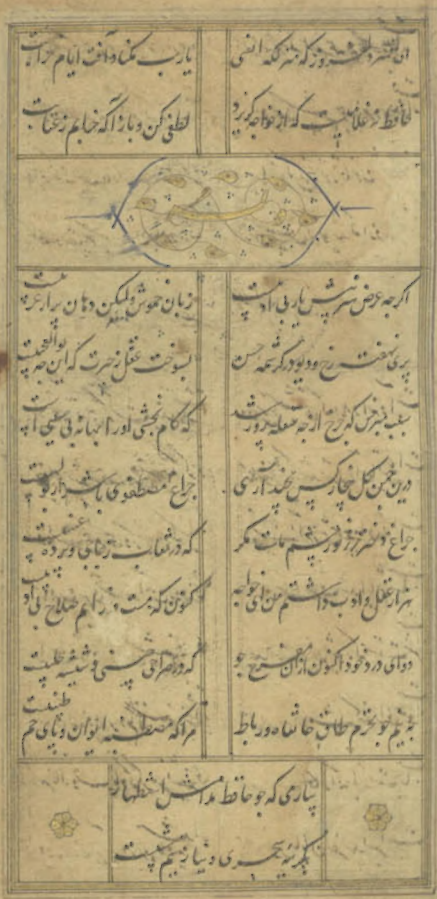 ای قصر دلفروز که منزلکه انسی یارب مکناد آفت ایام خرابت
حافظ نه غلامیست که از خواجه کریزد لطفی کن و بازآ که خرابم ز عتابت
اکرچه عرض هنر پیش یار بی ادبیست زبان خموش ولیکن دهان پر از عربیست
پری نهفته رخ و دیو در کرشمه حسن بسوخت عقل ز حیرت که این چه بوالعجبیست
سبب مپرس که چرخ از چه سفله پرور شد که کام بخشی او را بهانه بی سببیست
درین چمن کل بیخار کس نچید آری چراغ مصطفوی با شرار بولهبیست
چراغ دختر رز نور چشم ماست مکر که در نقاب زجاجی و پرده عنبیست
هزار عقل و ادب داشتم من ای خواجه کنون که مست و خرابم صلاح بی ادبیست
دوای درد خود اکنون از آن مفرح جو که در صراحی چینی و شیشه حلبیست
به نیم جو نخرم طاق خانقاه و رباط مرا که مصطبه ایوان و پای خم طنبیست
بیار می که چو حافظ مدامش استظهار
بکریه سحری و نیاز نیم شبیست